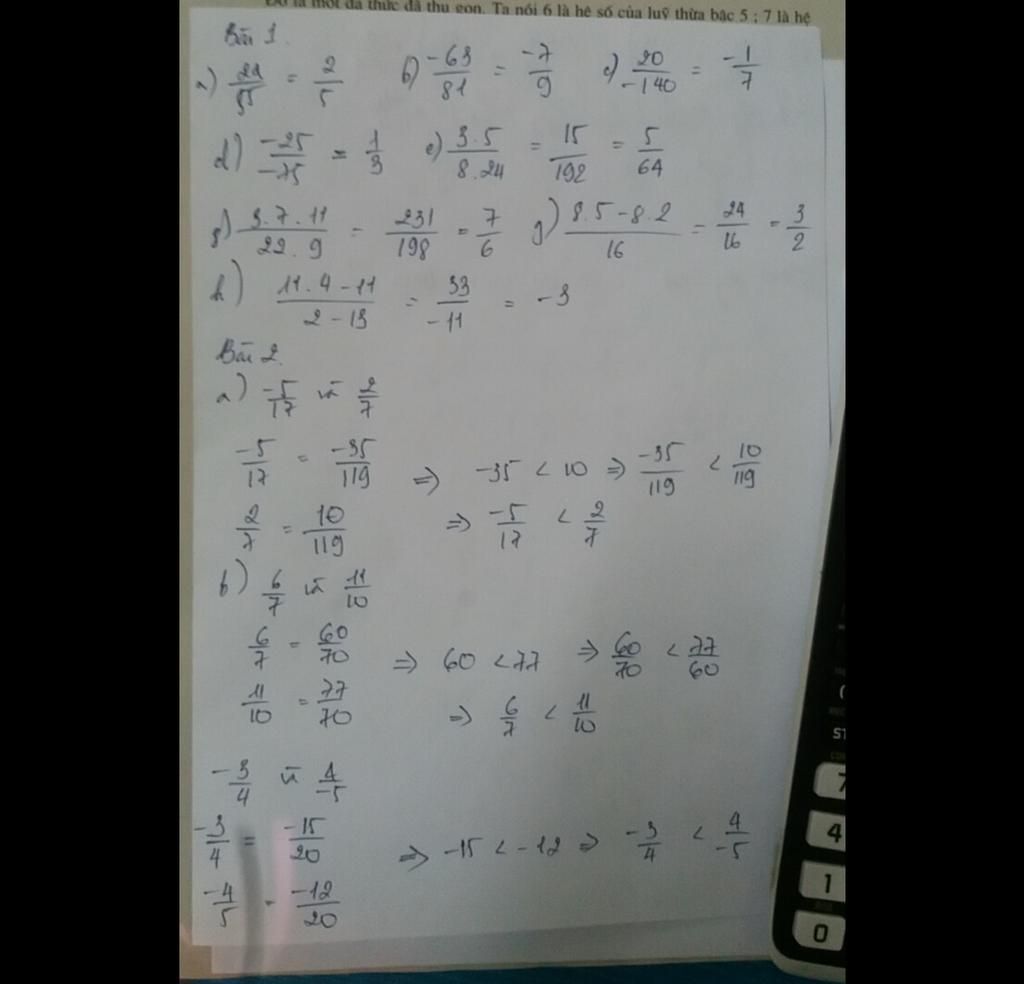 Đó là một đa thức đã thu gọn. Ta nói 6 là hệ số của luỹ thừa bậc 5 ; 7 là hệ
Bài 1.
a) 22/55 = 2/5 b) -63/81 = -7/9 c) 20/-140 = -1/7
d) -25/-75 = 1/3 e) 3.5/8.24 = 15/192 = 5/64
f) 3.7.11/22.9 = 231/198 = 7/6 g) 8.5-8.2/16 = 24/16 = 3/2
h) 11.4-11/2-13 = 33/-11 = -3
Bài 2.
a) -5/17 và 2/7
-5/17 = -35/119 => -35 < 10 => -35/119 < 10/119
2/7 = 10/119 => -5/17 < 2/7
b) 6/7 và 11/10
6/7 = 60/70 => 60 < 77 => 60/70 < 77/60
11/10 = 77/70 => 6/7 < 11/10
-3/4 và 4/-5
-3/4 = -15/20 => -15 < -12 => -3/4 < 4/-5
-4/5 = -12/20
7
4
1
0